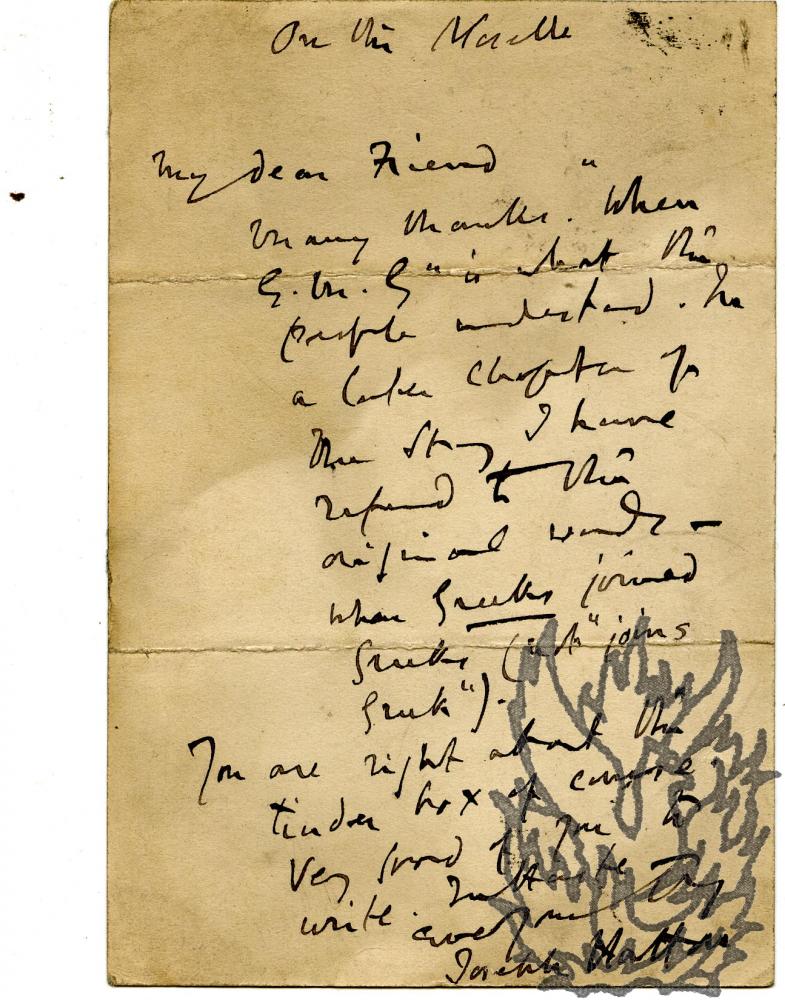 On the Moselle
My dear Friend
Many thanks. "When
G. m. G" is what the
people understand. In
a later chapter of
the story I have
referred to the
original words –
when Greeks joined
Greeks (not "joins
Greek").
You are right about the
tinder box of course.
Very good of you to
write. In haste
ever yours truly
Joseph Hatton